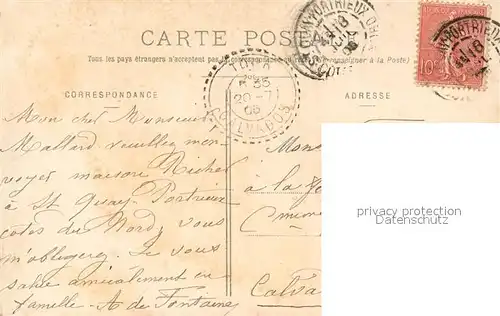 CARTE POSTALE
Tous les pays étrangers n'acceptent pas la correspondance au recto (se renseigner à la Poste)
CORRESPONDANCE
ADRESSE
Mon cher Monsieur
Mallard veuillez m'en
voyer maison Richet
à St Quay-Portrieux
côtes du Nord, vous
m'obligerez. Je vous
salue amicalement en
famille - A de Fontaine
à la
Calva
8 35
20 - 7
05
CALVADOS
ST QUAY PORTRIEUX
18
10
privacy protection
Datenschutz